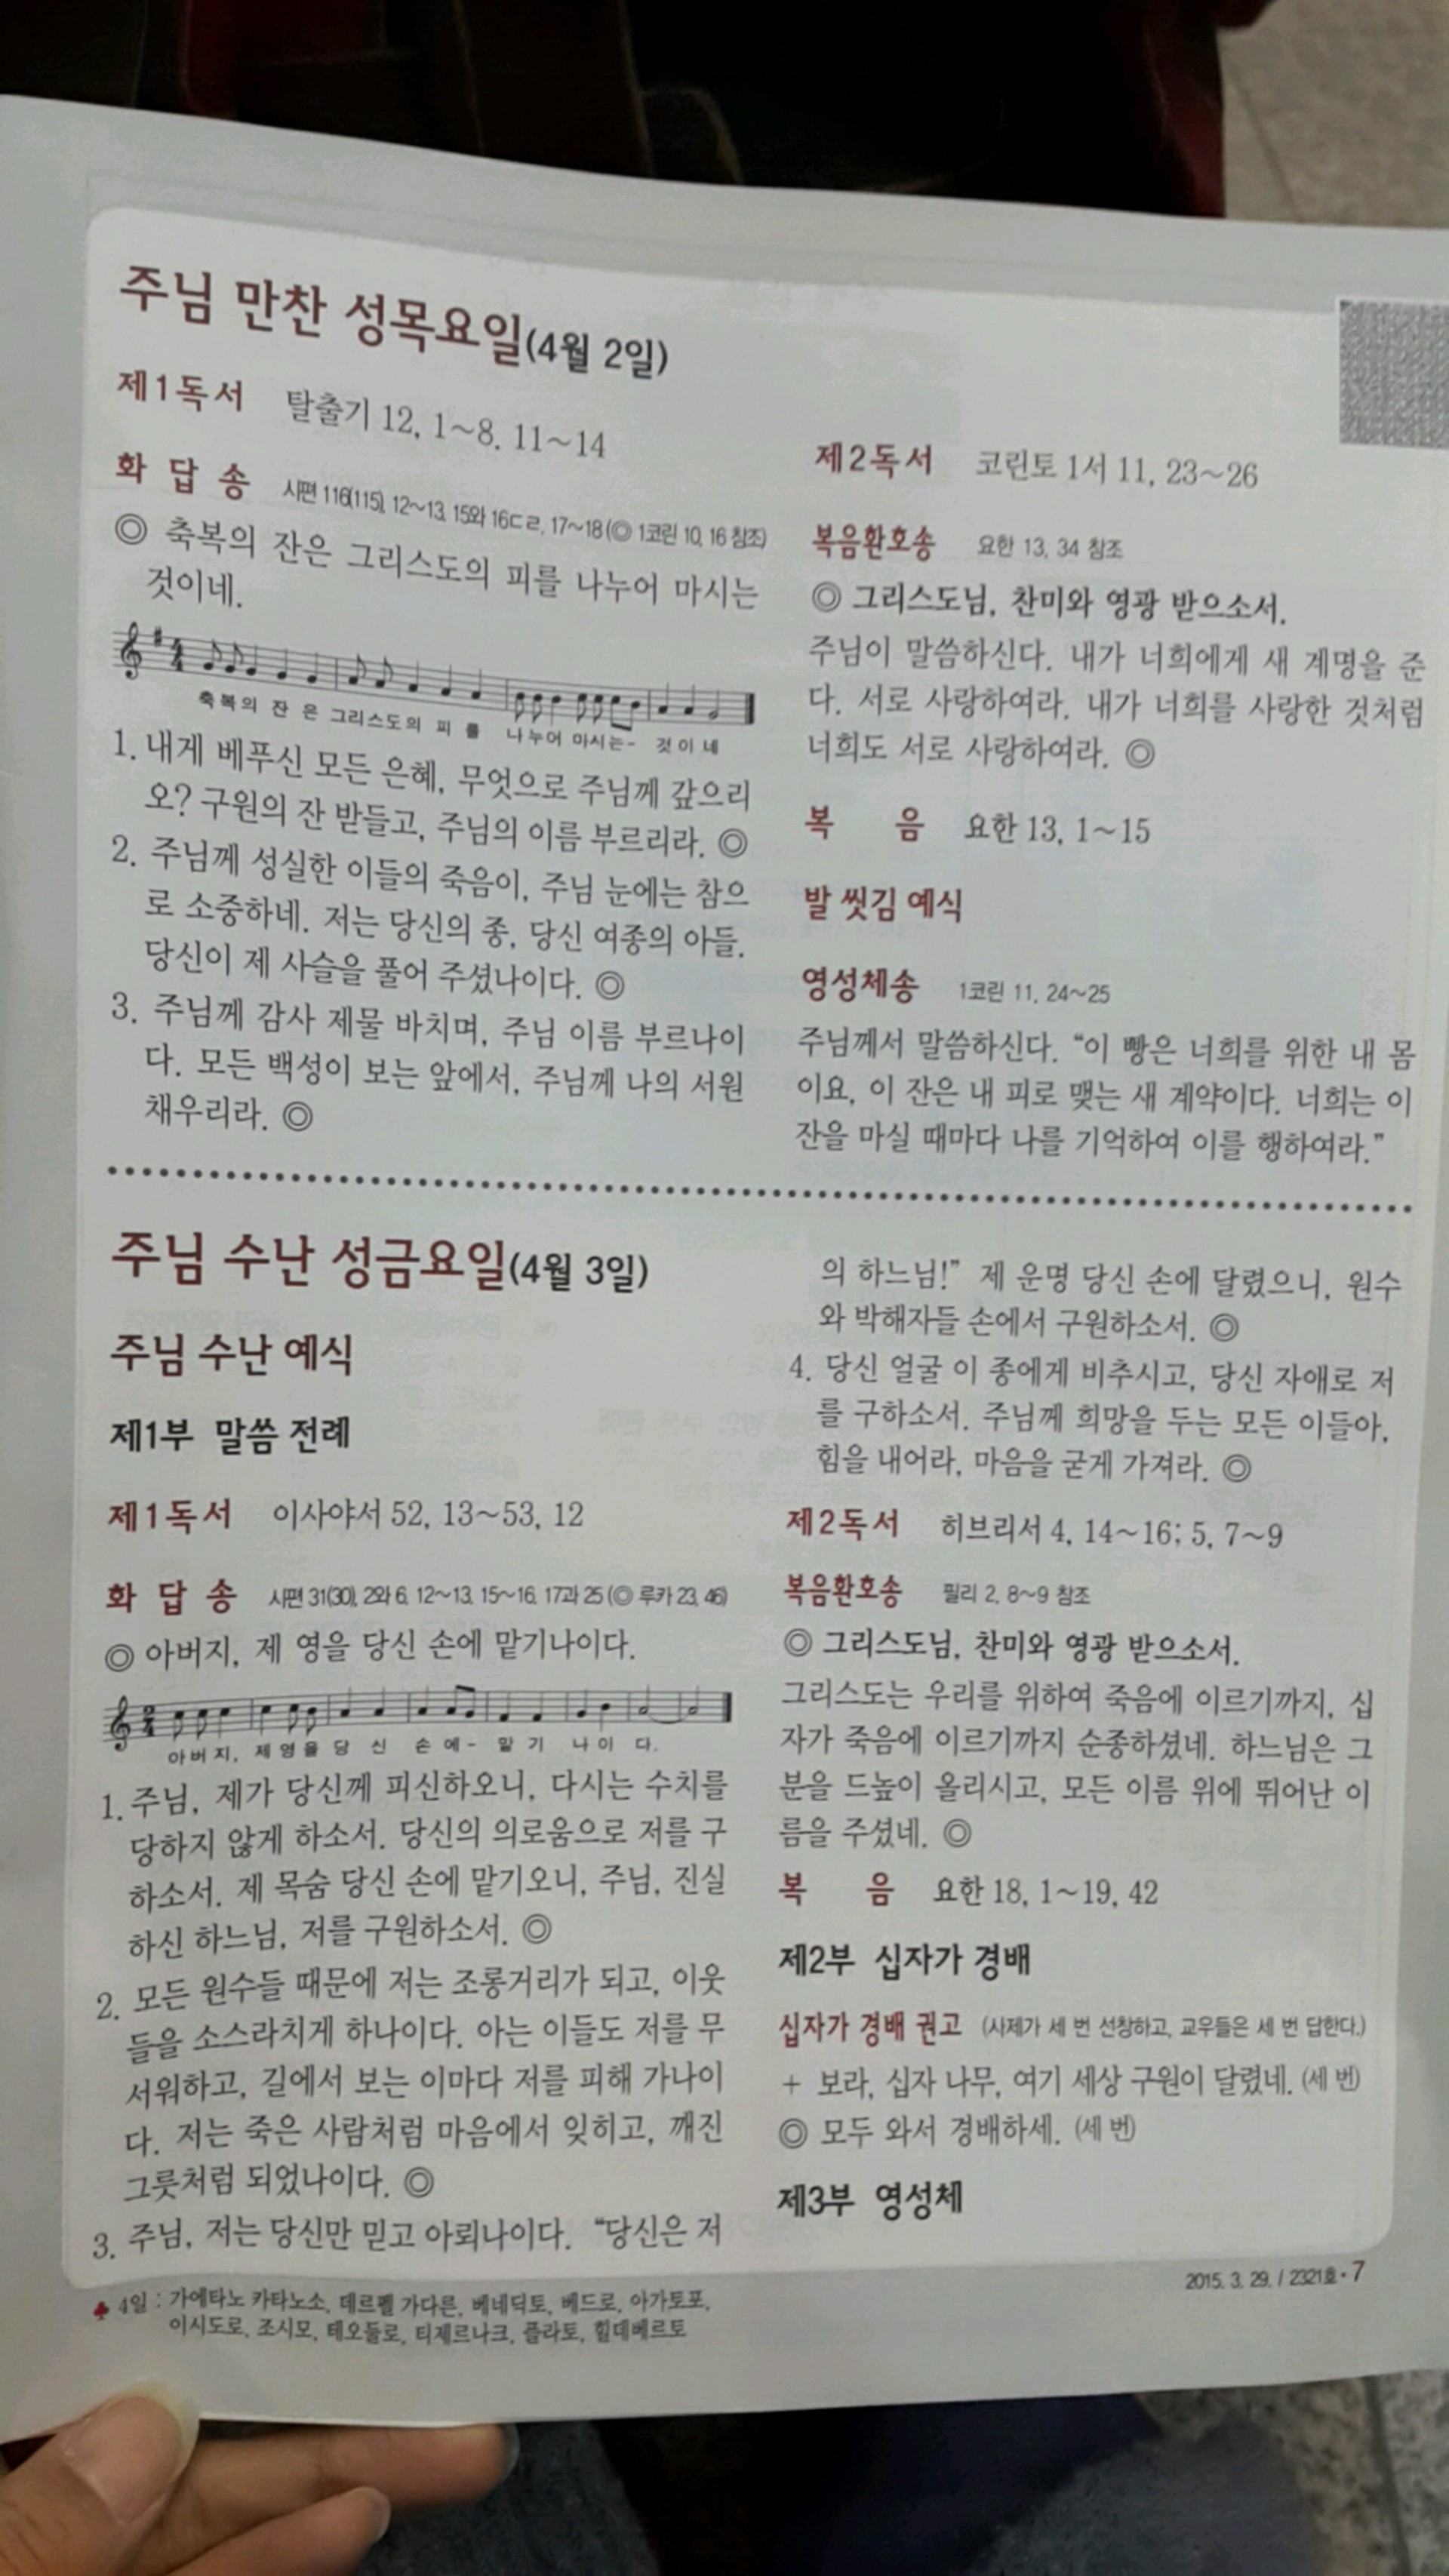 주님 만찬 성목요일(4월 2일)
제1독서 탈출기 12, 1~8. 11~14
화 답 송 시편 116(115), 12~13. 15와 16ㄷㄹ. 17~18 (◎ 1코린 10, 16 참조)
◎ 축복의 잔은 그리스도의 피를 나누어 마시는
것이네.
축복의 잔 은 그리스도의 피 를 나누어 마시는- 것 이 네
1. 내게 베푸신 모든 은혜, 무엇으로 주님께 갚으리
오? 구원의 잔 받들고, 주님의 이름 부르리라. ◎
2. 주님께 성실한 이들의 죽음이, 주님 눈에는 참으
로 소중하네. 저는 당신의 종, 당신 여종의 아들.
당신이 제 사슬을 풀어 주셨나이다. ◎
3. 주님께 감사 제물 바치며, 주님 이름 부르나이
다. 모든 백성이 보는 앞에서, 주님께 나의 서원
채우리라. ◎
제2독서 코린토 1서 11, 23~26
복음환호송 요한 13, 34 참조
◎ 그리스도님, 찬미와 영광 받으소서.
주님이 말씀하신다. 내가 너희에게 새 계명을 준
다. 서로 사랑하여라. 내가 너희를 사랑한 것처럼
너희도 서로 사랑하여라. ◎
복 음 요한 13, 1~15
발 씻김 예식
영성체송 1코린 11, 24~25
주님께서 말씀하신다. “이 빵은 너희를 위한 내 몸
이요, 이 잔은 내 피로 맺는 새 계약이다. 너희는 이
잔을 마실 때마다 나를 기억하여 이를 행하여라.”
주님 수난 성금요일(4월 3일)
주님 수난 예식
제1부 말씀 전례
제1독서 이사야서 52, 13~53, 12
화 답 송 시편 31(30), 2와 6. 12~13. 15~16. 17과 25 (◎ 루카 23, 46)
◎ 아버지, 제 영을 당신 손에 맡기나이다.
아버 지, 제 영 을 당 신 손 에- 맡 기 나 이 다.
1. 주님, 제가 당신께 피신하오니, 다시는 수치를
당하지 않게 하소서. 당신의 의로움으로 저를 구
하소서. 제 목숨 당신 손에 맡기오니, 주님, 진실
하신 하느님, 저를 구원하소서. ◎
2. 모든 원수들 때문에 저는 조롱거리가 되고, 이웃
들을 소스라치게 하나이다. 아는 이들도 저를 무
서워하고, 길에서 보는 이마다 저를 피해 가나이
다. 저는 죽은 사람처럼 마음에서 잊히고, 깨진
그릇처럼 되었나이다. ◎
3. 주님, 저는 당신만 믿고 아뢰나이다. “당신은 저
의 하느님!” 제 운명 당신 손에 달렸으니, 원수
와 박해자들 손에서 구원하소서. ◎
4. 당신 얼굴 이 종에게 비추시고, 당신 자애로 저
를 구하소서. 주님께 희망을 두는 모든 이들아,
힘을 내어라, 마음을 굳게 가져라. ◎
제2독서 히브리서 4, 14~16; 5, 7~9
복음환호송 필리 2, 8~9 참조
◎ 그리스도님, 찬미와 영광 받으소서.
그리스도는 우리를 위하여 죽음에 이르기까지, 십
자가 죽음에 이르기까지 순종하셨네. 하느님은 그
분을 드높이 올리시고, 모든 이름 위에 뛰어난 이
름을 주셨네. ◎
복 음 요한 18, 1~19, 42
제2부 십자가 경배
십자가 경배 권고 (사제가 세 번 선창하고, 교우들은 세 번 답한다.)
+ 보라, 십자 나무, 여기 세상 구원이 달렸네. (세 번)
◎ 모두 와서 경배하세. (세 번)
제3부 영성체
2015. 3. 29. / 2321호 · 7
♣ 4일 : 가에타노 카타노소, 데르펠 가다른, 베네딕토, 베드로, 아가토포,
이시도로, 조시모, 테오둘로, 티제르나크, 플라토, 힐데베르토